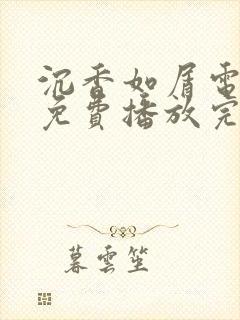 沉香如屑電
免費播放完
暮雲笙